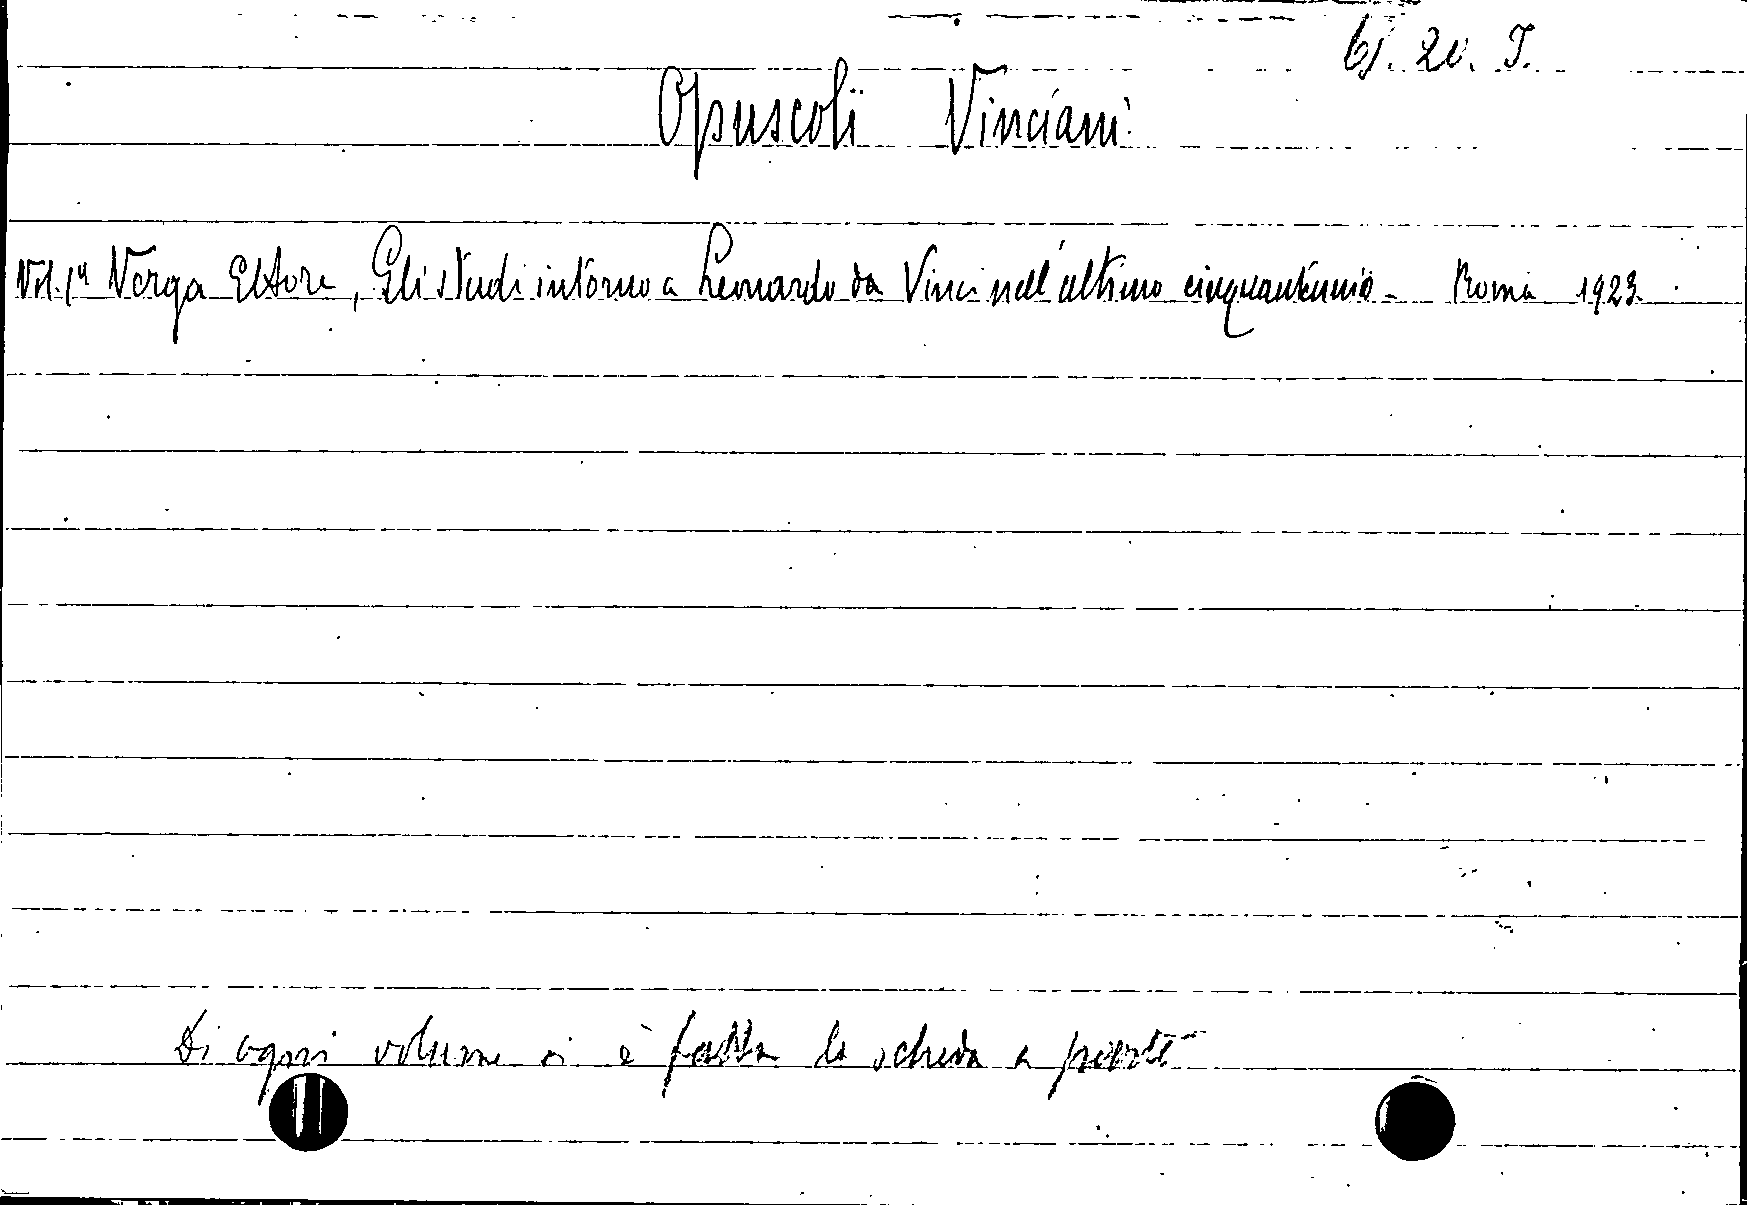 61. 20. I.
Opuscoli Vinciani
Vol. 1º Verga Ettore, Gli studi intorno a Leonardo da Vinci nell'ultimo cinquantennio - Roma 1923.
Di ogni volume si è fatta la scheda a parte